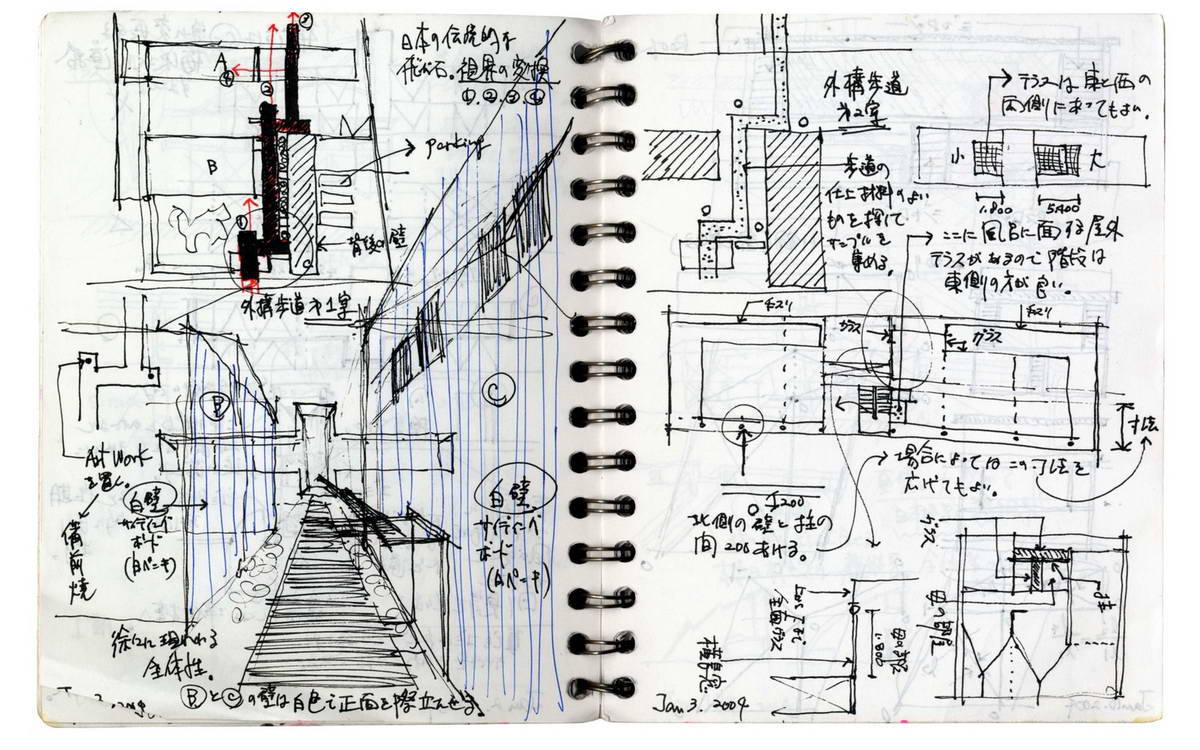 日本の伝統的な
飛び石。視界の変換
①.②.③.④
③
A
④
②
B
parking
①
背後の壁
C
外構歩道 第1案
B
C
Art Work
を置く。
備前焼
白壁
サイディング
ボード
(白ペーキ)
白壁
サイディング
ボード
(白ペーキ)
徐々に現われる
全体性。
ⒷとⒸの壁は白色で正面を際立たせる。
外構歩道
第2案
歩道の
仕上材料のよい
ものを探して
サンプルを
集める。
テラスは東と西の
両側にあってもよい。
小
大
1.800
5400
ここに風呂に面する屋外
テラスがあるので階段は
東側の方が良い。
手スリ
ガラス
手スリ
ガラス
寸法
場合によってはこの寸法を
広げてもよい。
200
北側の壁と柱の
間200あける。
ガラス
柱
母の部屋
全面ガラス
1.800
Jan 3. 2004